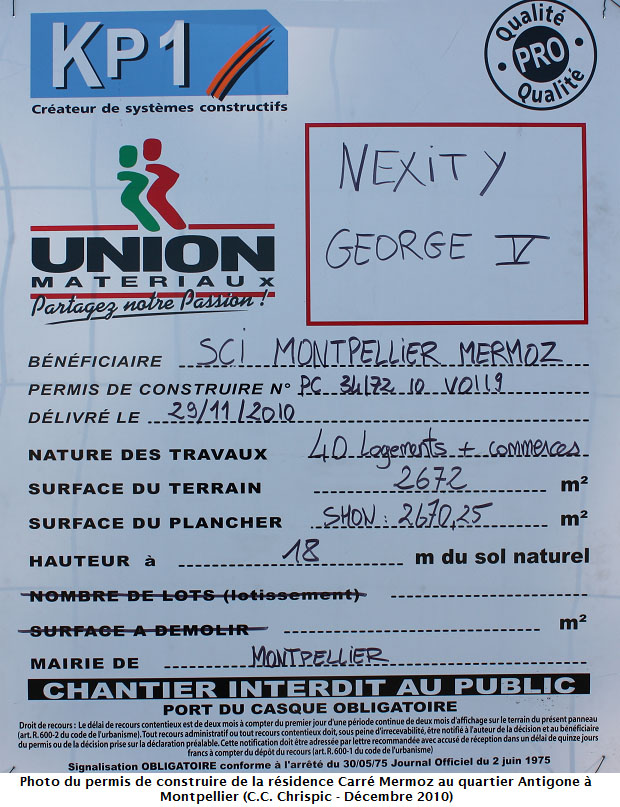 KP1
Créateur de systèmes constructifs
Qualité
PRO
Qualité
UNION
MATERIAUX
Partagez notre Passion !
NEXITY
GEORGE V
BÉNÉFICIAIRE SCI MONTPELLIER MERMOZ
PERMIS DE CONSTRUIRE N° PC 34172 10 V0119
DÉLIVRÉ LE 29/11/2010
NATURE DES TRAVAUX 40 Logements + commerces
SURFACE DU TERRAIN 2672 m²
SURFACE DU PLANCHER SHON : 2670,25 m²
HAUTEUR à 18 m du sol naturel
NOMBRE DE LOTS (lotissement)
SURFACE A DEMOLIR m²
MAIRIE DE MONTPELLIER
CHANTIER INTERDIT AU PUBLIC
PORT DU CASQUE OBLIGATOIRE
Droit de recours : Le délai de recours contentieux est de deux mois à compter du premier jour d'une période continue de deux mois d'affichage sur le terrain du présent panneau
(art. R. 600-2 du code de l'urbanisme). Tout recours administratif ou tout recours contentieux doit, sous peine d'irrecevabilité, être notifié à l'auteur de la décision et au bénéficiaire
du permis ou de la décision prise sur la déclaration préalable. Cette notification doit être adressée par lettre recommandée avec accusé de réception dans un délai de quinze jours
francs à compter du dépôt du recours (art. R. 600-1 du code de l'urbanisme)
Signalisation OBLIGATOIRE conforme à l'arrêté du 30/05/75 Journal Officiel du 2 juin 1975
Photo du permis de construire de la résidence Carré Mermoz au quartier Antigone à
Montpellier (C.C. Chrispic - Décembre 2010)